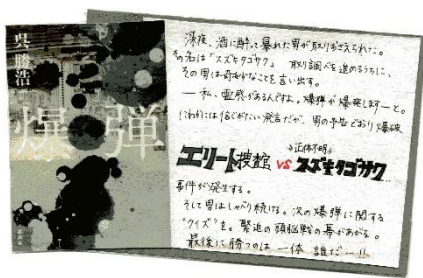 呉勝浩
爆弾
深夜、酒に酔って暴れた男が取りおさえられた。
その名は「スズキタゴサク」 取り調べを進めるうちに、
その男は奇妙なことを言い出す。
― 私、霊感があるんですよ。爆弾が爆発します ― と。
にわかには信じがたい発言だが、男の予告どおり爆破
エリート捜査官 VS 正体不明 スズキタゴサク
事件が発生する。
そして男はしゃべり続ける。次の爆弾に関する
"クイズ"を。緊迫の頭脳戦の幕があがる。
最後に勝つのは一体 誰だ―!!